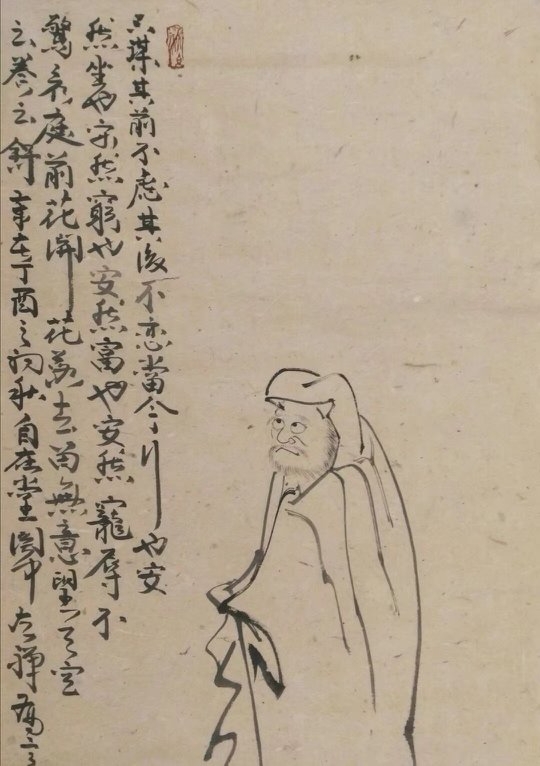 不謀其前不慮其後不恋當今行也安
然坐也安然窮也安然富也安然寵辱不
驚看庭前花開花落去留無意望天空
云卷云舒 辛丁酉之初秋自在堂閣中左禅